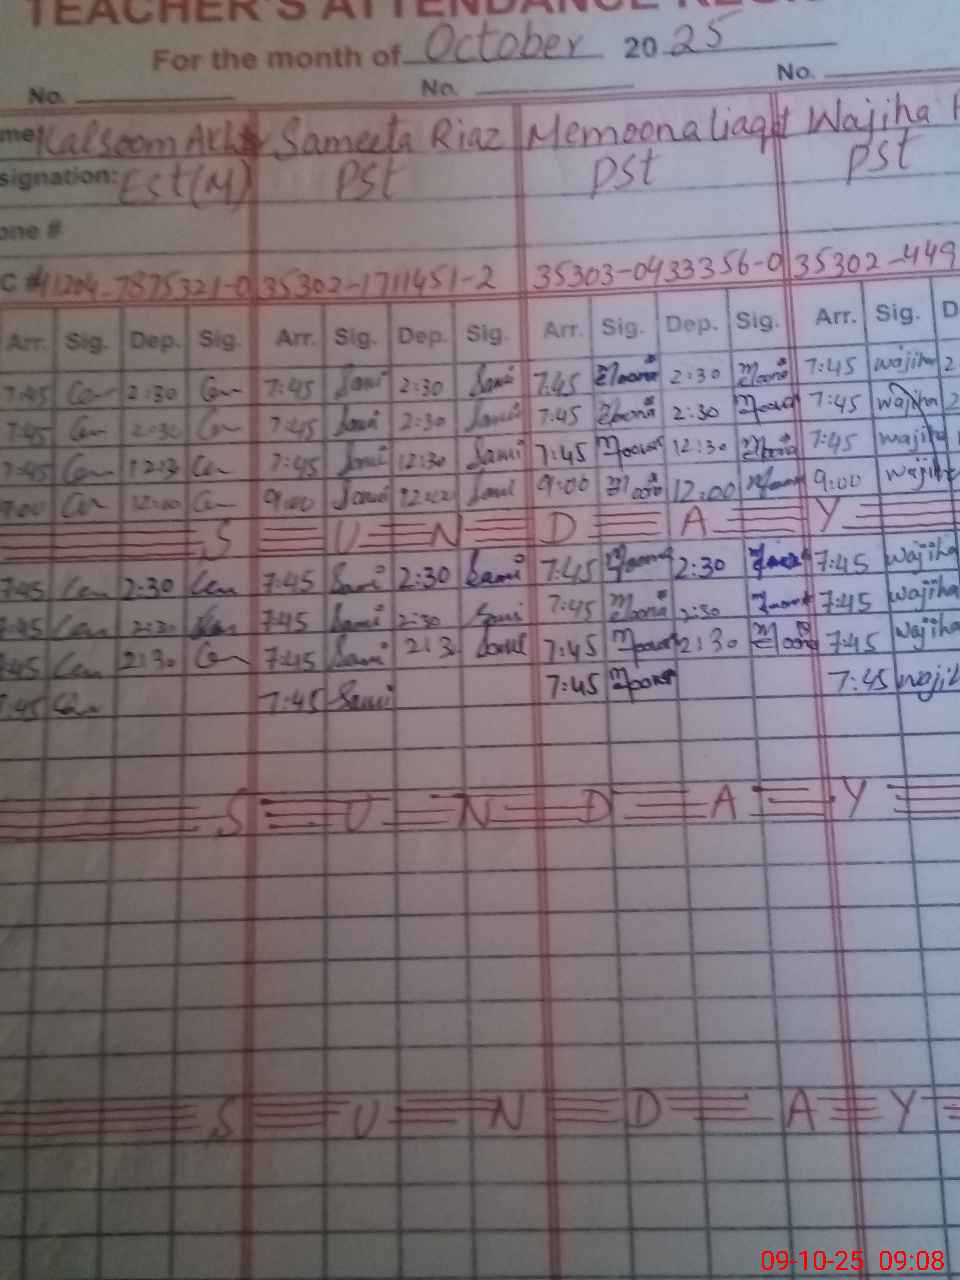 TEACHER'S ATTENDANCE
For the month of October 2025
No. No. No.
Kalsoom Sameeta Riaz Memoona liaqat Wajiha
signation: Est(M) PSt PSt PSt
one #
C # 41204-7875321-0 35302-1711451-2 35303-0433356-0 35302-449
Arr. Sig. Dep. Sig. Arr. Sig. Dep. Sig. Arr. Sig. Dep. Sig. Arr. Sig. D
7:45 2:30 7:45 Sami 2:30 Sami 7:45 Moona 2:30 Moona 7:45 wajiha 2
7:45 2:30 7:45 Sami 2:30 Sami 7:45 Moona 2:30 Moona 7:45 wajiha 2
7:45 12:3 7:45 Sami 12:30 Sami 7:45 Moona 12:30 Moona 7:45 wajiha 1
9:00 12:00 9:00 Sami Sami 9:00 Moona 12:00 9:00 wajiha
S U N D A Y
7:45 2:30 7:45 Sami 2:30 Sami 7:45 Moona 2:30 7:45 wajiha
7:45 2:30 7:45 Sami 2:30 Sami 7:45 Moona 2:30 7:45 wajiha
7:45 2:30 7:45 Sami 2:3 Sami 7:45 Moona 2:30 Moona 7:45 wajiha
7:45 7:45 Sami 7:45 Moona 7:45 wajih
S U N D A Y
S U N D A Y
09-10-25 09:08